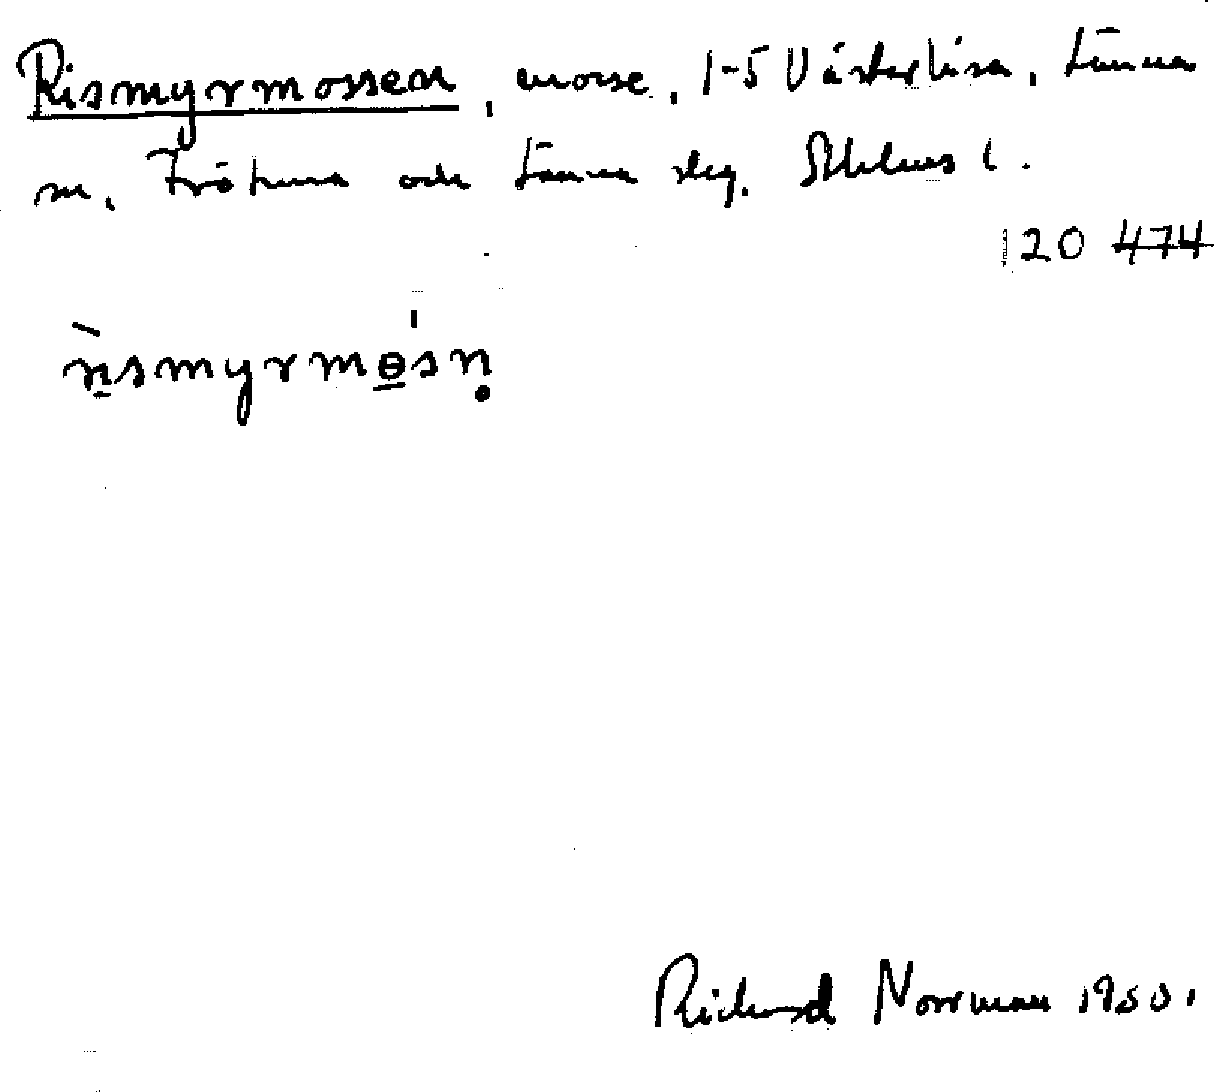 Rismyrmossen, mosse, 1-5 Västerlisa, Länna
sn, Frötuna och Länna slg. Sthlms l.
120 474
rismyrmɵsn̥
Richard Norrman 1950.